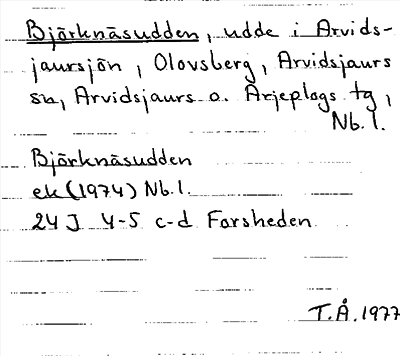 Björknäsudden, udde i Arvids-
jaursjön, Olovsberg, Arvidsjaurs
sn, Arvidsjaurs o. Arjeplogs tg,
Nb. l.
Björknäsudden
ek (1974) Nb. l.
24 J 4-5 c-d Forsheden
T. Å. 1977